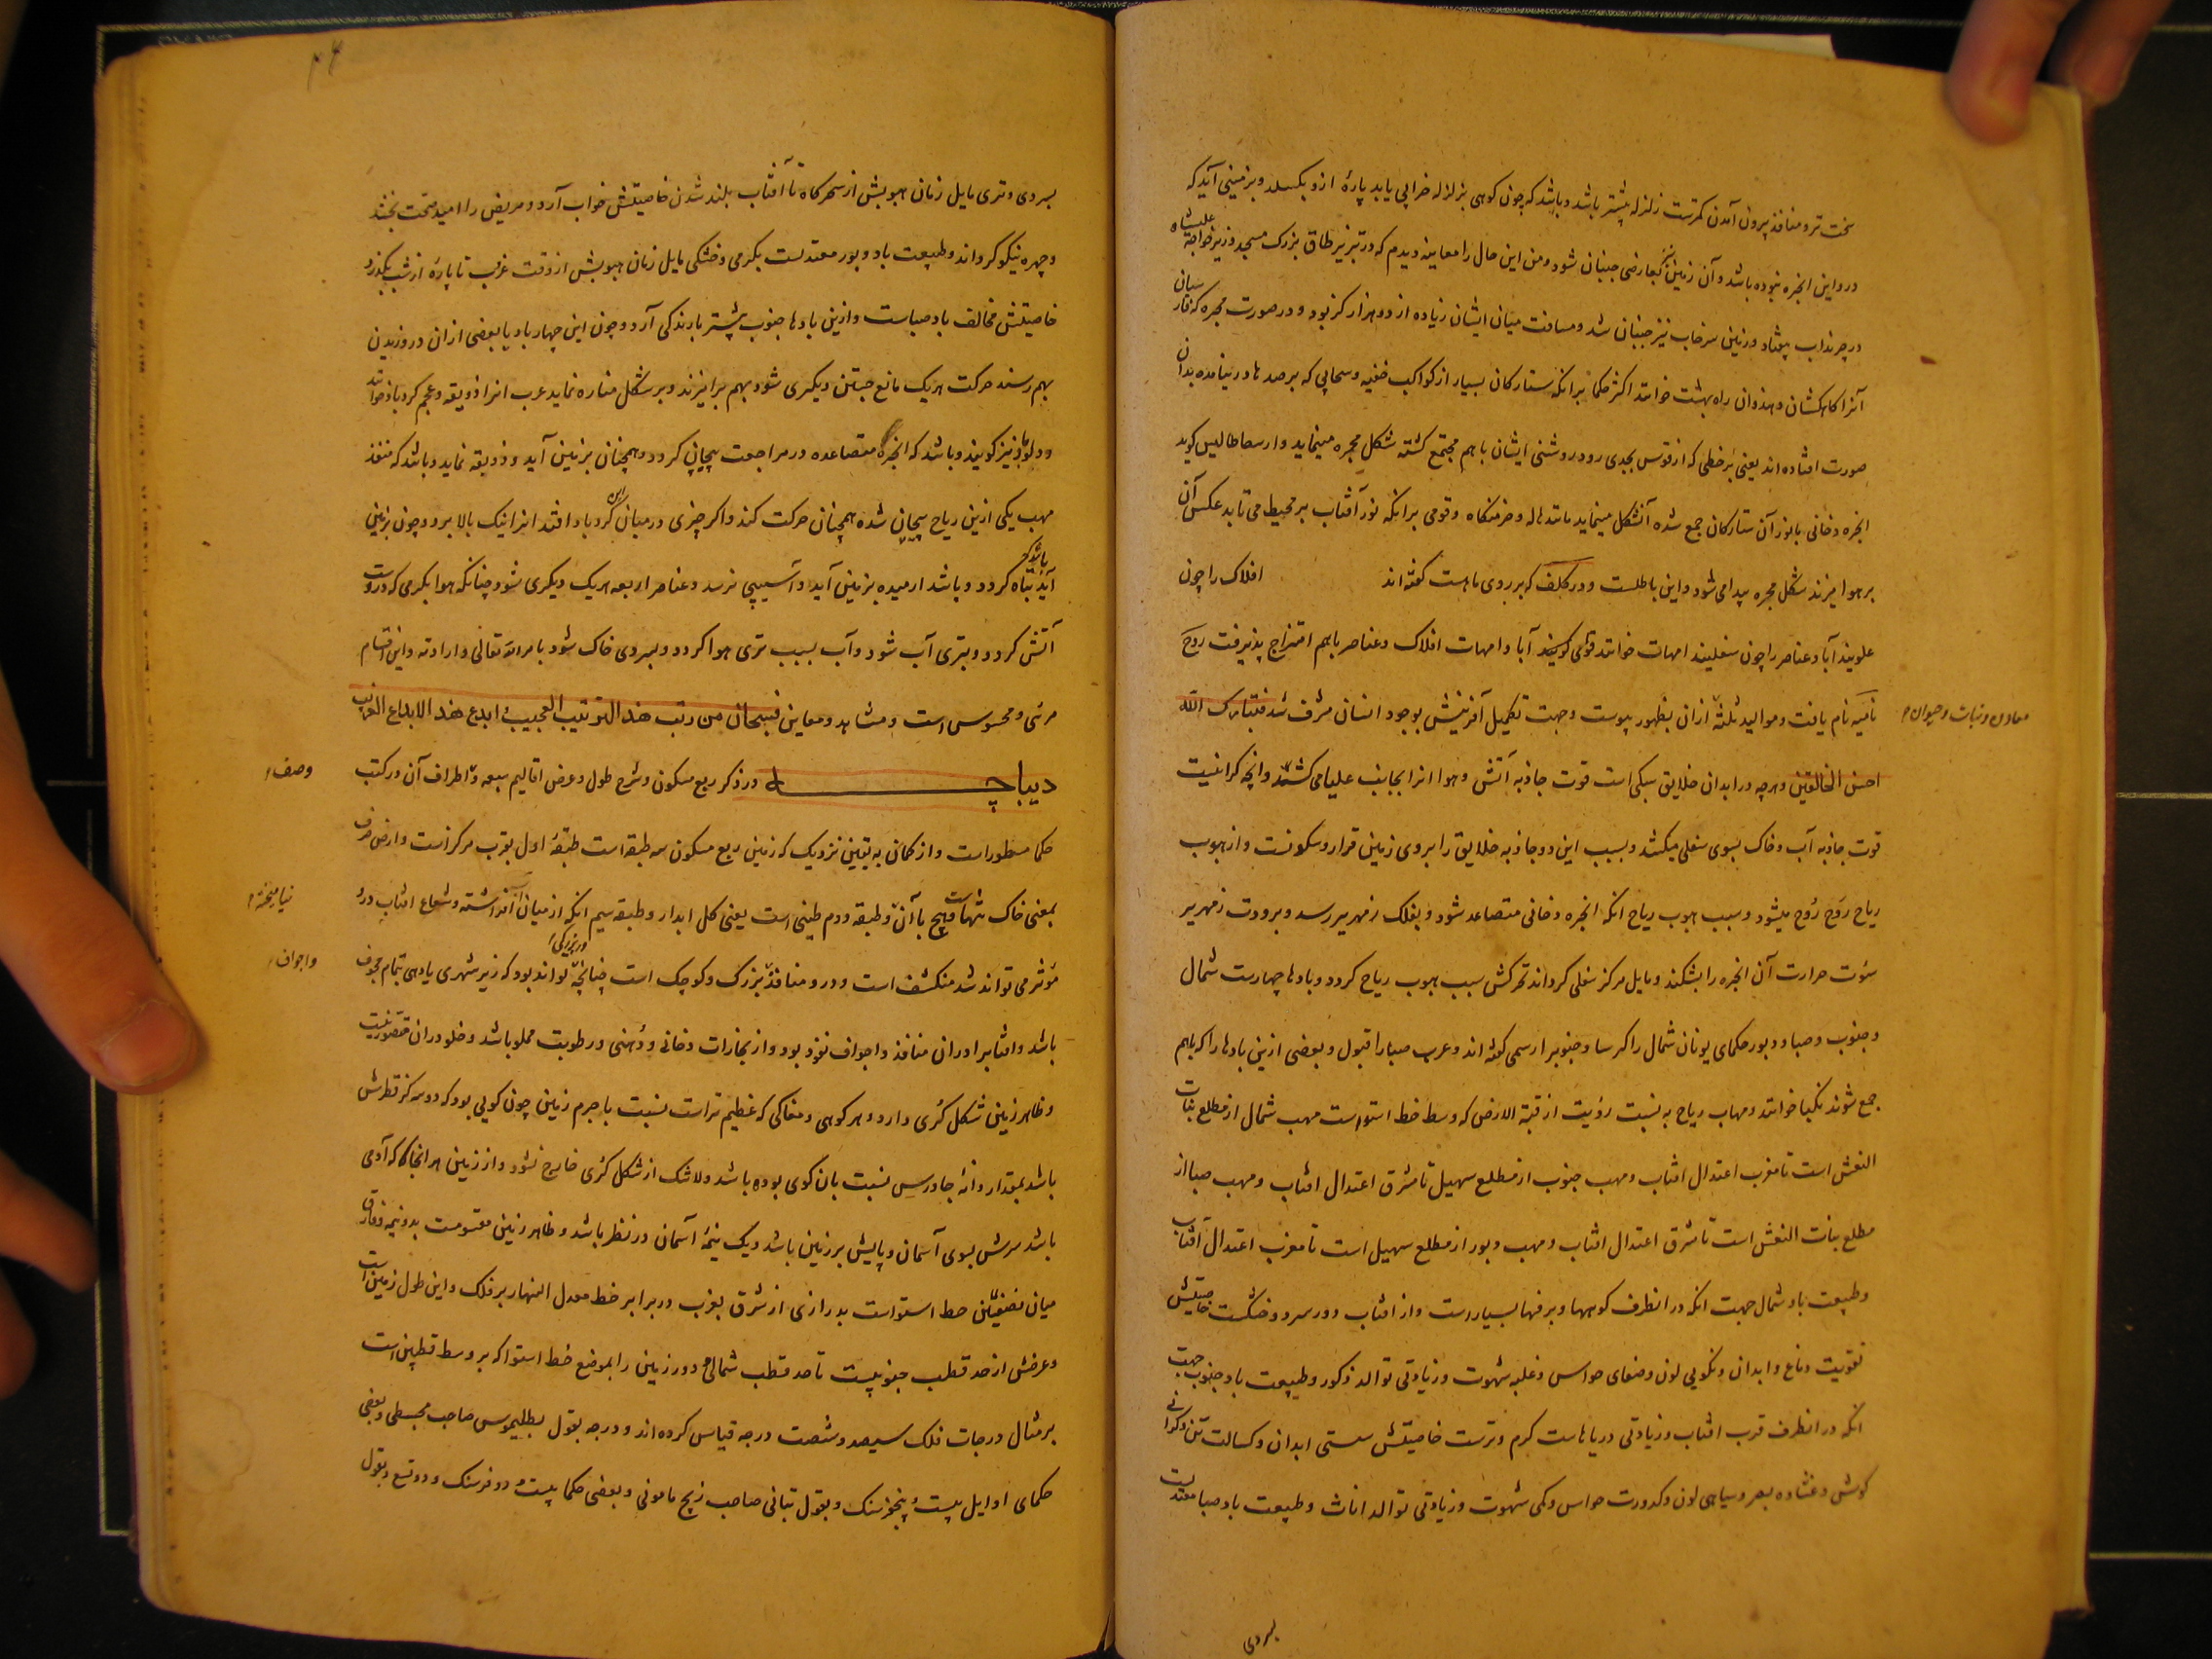 سخت‌تر و منافذ بیرون آمدن کمترست زلزله بیشتر باشد و باشد که چون کوهی بزلزله خرابی یابد پارهٔ ازو بکسلد و بزمینی آید که
درو این ابخره نبوده باشد و آن زمین نیز بعارضی جنبان شود و من این حال را معاینه دیدم که در تبریز طاق بزرک مسجد وزیر خواجه علیشاه
در چرنداب بیفتاد و زمین سرخاب نیز جنبان شد و مسافت میان ایشان زیاده از دو هزار کز بود و در صورت مجره که
آنرا کاهکشان و هندوان راه بهشت خوانند اکثر حکما برانکه ستارکان بسیار از کواکب خفیه و سحابی که بر صدها در نیامده بدان
صورت افتاده‌اند یعنی بر خطی که از قوس بجدی رود و روشنی ایشان با هم مجتمع کشته شکل مجره مینماید و ارسطاطالیس کوید
ابخره دخانی بانوار آن ستارکان جمع شده آنشکل مینماید مانند هاله و خرمنکاه و قومی برانکه نور آفتاب بر محیط می‌تابد عکس آن
بر هوا میزند شکل مجره پیدا می‌شود و این باطلست و در کلف که بر روی ماهست کفته‌اند افلاک را چون
علویند آبا و عناصر را چون سفلیند امهات خوانند قومی کویند آبا و امهات افلاک و عناصر باهم امتزاج پذیرفت روح
نامیه نام یافت و موالید ثلثه ازان بظهور پیوست و جهت تکمیل آفرینش بوجود انسان مشرف شد فتبارک الله
معادن و نبات و حیوان
احسن الخالقین و هرچه در ابدان خلایق سبکی است قوت جاذبه آتش و هوا انرا بجانب علیا می‌کشند و انچه کرانیست
قوت جاذبه آب و خاک بسوی سفلی میکشد و بسبب این دو جاذبه خلایق را بر روی زمین قرار و سکونست و از هبوب
ریاح روح روح میشود و سبب هبوب ریاح انکه ابخره دخانی متصاعد شود و بفلک زمهریر رسد و برودت زمهریر
سوت حرارت آن ابخره را بشکند و مایل مرکز سفلی کرداند تحرکش سبب هبوب ریاح کردد و بادها چهارست شمال
و جنوب و صبا و دبور حکمای یونان شمال را کرسا و جنوبرا رسمی کفته‌اند و عرب صبا را قبول و بعضی ازین بادها را که باهم
جمع شوند نکبا خوانند و مهاب ریاح به نسبت رؤیت از قبة الارض که وسط خط استواست مهب شمال از مطلع بنات
النعش است تا مغرب اعتدال افتاب و مهب جنوب از مطلع سهیل تا مشرق اعتدال افتاب و مهب صبا از
مطلع بنات النعش است تا مشرق اعتدال افتاب و مهب دبور از مطلع سهیل است تا مغرب اعتدال آفتاب
و طبیعت باد شمال جهت انکه درانطرف کوهها و برفها بسیارست و از افتاب دور سرد و خشکست خاصیتش
تقویت دماغ و ابدان و نکویی لون و صفای حواس و غلبه شهوت و زیادتی توالد ذکور و طبیعت باد جنوب جهت
انکه درانطرف قرب افتاب و زیادتی دریاهاست کرم و ترست خاصیتش سستی ابدان و کسالت تن و کرانی
کوش و غشاوه بصر و سیاهی لون و کدورت حواس و کمی شهوت و زیادتی توالد اناث و طبیعت باد صبا معتدلست
بسردی
بسردی و تری مایل زمان هبوبش از سحرکاه تا آفتاب بلند شدن خاصیتش خواب آرد و مریض را امید صحت بخشد
و چهره نیکو کرداند و طبیعت باد دبور معتدلست بکرمی و خشکی مایل زمان هبوبش از وقت غروب تا پارهٔ از شب بکذرد
خاصیتش مخالف باد صباست و ازین بادها جنوب بیشتر بارندکی آرد و چون این چهار باد یا بعضی ازان در وزیدن
بهم رسند حرکت هریک مانع جستن دیکری شود بهم برامیزند و بر شکل مناره نماید عرب انرا زوبعه و عجم کردباد خوانند
و دیوباد نیز کویند و باشد که ابخره متصاعده در مراجعت پیچان کردد و همچنان بزمین آید و زوبعه نماید و باشد که منفذ
مهب یکی ازین ریاح پیچان شده همچنان حرکت کند و اکر چیزی در میان این کردباد افتد انرا نیک بالا برد و چون بزمین
آید باشد که تباه کردد و باشد ارمیده بزمین آید و آسیبی نرسد و عناصر اربعه هریک دیکری شود چنانکه هوا بکرمی که دروست
آتش کردد و بتری آب شود و آب بسبب تری هوا کردد و بسردی خاک شود بامر الله تعالی و ارادته و این اقسام
مرئی و محسوس است و مشاهد و معاین فسبحان من رتب هذا الترتیب العجیب و ابدع هذا الابداع الغریب
دیباچه در ذکر ربع مسکون و شرح طول و عرض اقالیم سبعه و اطراف آن در کتب
وصف
حکما مسطورست و از کمان به یقین نزدیک که زمین ربع مسکون سه طبقه است طبقهٔ اول بقرب مرکز است و ارض صرف
بمعنی خاک تنهاست و هیچ با آن و طبقه دوم طینی است یعنی کل ابدار و طبقه سیم انکه از میان آب افراشته و شعاع افتاب درو
نیامیخته
مؤثر می‌تواند شد منکشف است و درو منافذ بزرک و کوچک است چنانچه در بزرکی تواند بود که زیر شهری یا دهی تمام مجوف
و اجواف
باشد و افتابرا دران منافذ و اجواف نفوذ بود و از بخارات دخانی و دهنی و رطوبت مملو باشد و خلو دران متصور نیست
و ظاهر زمین شکل کُری دارد و هر کوهی و مغاکی که عظیم‌تر است نسبت با جرم زمین چون کویی بود که دو سه کز قطرش
باشد بمقدار دانهٔ جاورس نسبت بان کوی بوده باشد و لاشک از شکل کُری خارج نشود و از زمین هر انجا که آدمی
باشد سرش بسوی آسمان و پایش بر زمین باشد و یک نیمهٔ آسمان در نظر باشد و ظاهر زمین مقسومست بدو نیمه و فارق
میان نصفین خط استواست بدرازی از شرق بغرب در برابر خط معدل النهار بر فلک و این طول زمین است
و عرضش از حد قطب جنوبیست تا حد قطب شمالی و دور زمین را بموضع خط استوا که بر وسط قطبین است
بر مثال درجات فلک سیصد و شصت درجه قیاس کرده‌اند و درجه بقول بطلیموس صاحب مجسطی و بعضی
حکمای اوایل بیست و پنج فرسنک و بقول بتانی صاحب زیج مامونی و بعضی حکما بیست و دو فرسنک و دو تسع و بقول